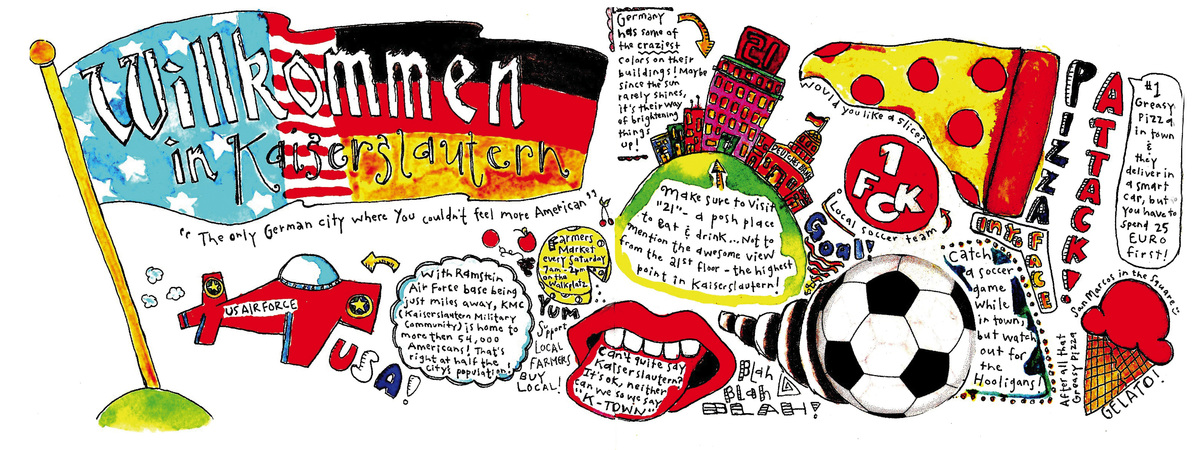 Willkommen
in Kaiserslautern
"The only German city where you couldn't feel more American"
US AIRFORCE
USA!
With Ramstein
Air Force base being
just miles away, KMC
(Kaiserslautern Military
Community) is home to
more then 54,000
Americans! That's
right at half the
city's population!
Farmers
Market
every Saturday
7am-2pm
on the
Walkplatz
YUM
Support
LOCAL
FARMERS
BUY
LOCAL!
Germany
has some of
the craziest
colors on their
buildings! Maybe
since the sun
rarely shines,
it's their way
of brightening
things
up!
21
Make sure to visit
"21" - a posh place
to Eat & drink... Not to
mention the awesome view
from the 21st floor - the highest
point in Kaiserslautern!
Can't quite say
Kaiserslautern?
It's ok, neither
can we so we say
"K-TOWN"
Blah
Blah
BLAH!
Would you like a slice?
1
FCK
Local soccer team
Goal!
Catch
a soccer
game
while
in town,
but watch
out for
the
Hooligans!
PIZZA
ATTACK!
INYO
FACE
#1
Greasy
Pizza
in town
&
they
deliver in
a smart
car, but
you have to
spend 25
EURO
first!
San Marcos in the Square
After all that
Greasy Pizza
GELATO!